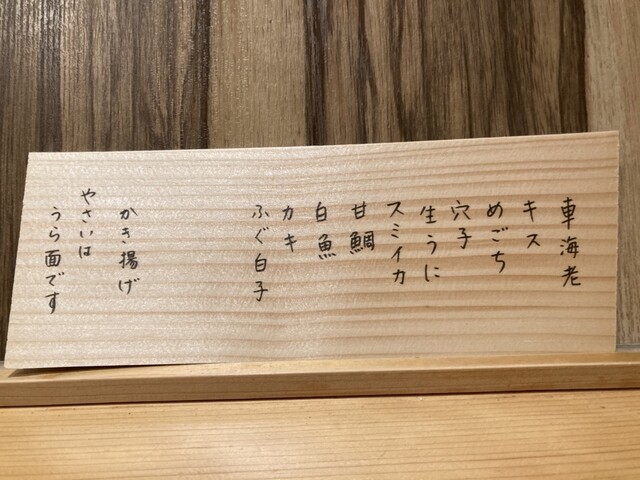 車海老
キス
めごち
穴子
生うに
スミイカ
甘鯛
白魚
カキ
ふぐ白子
かき揚げ
やさいは
うら面です